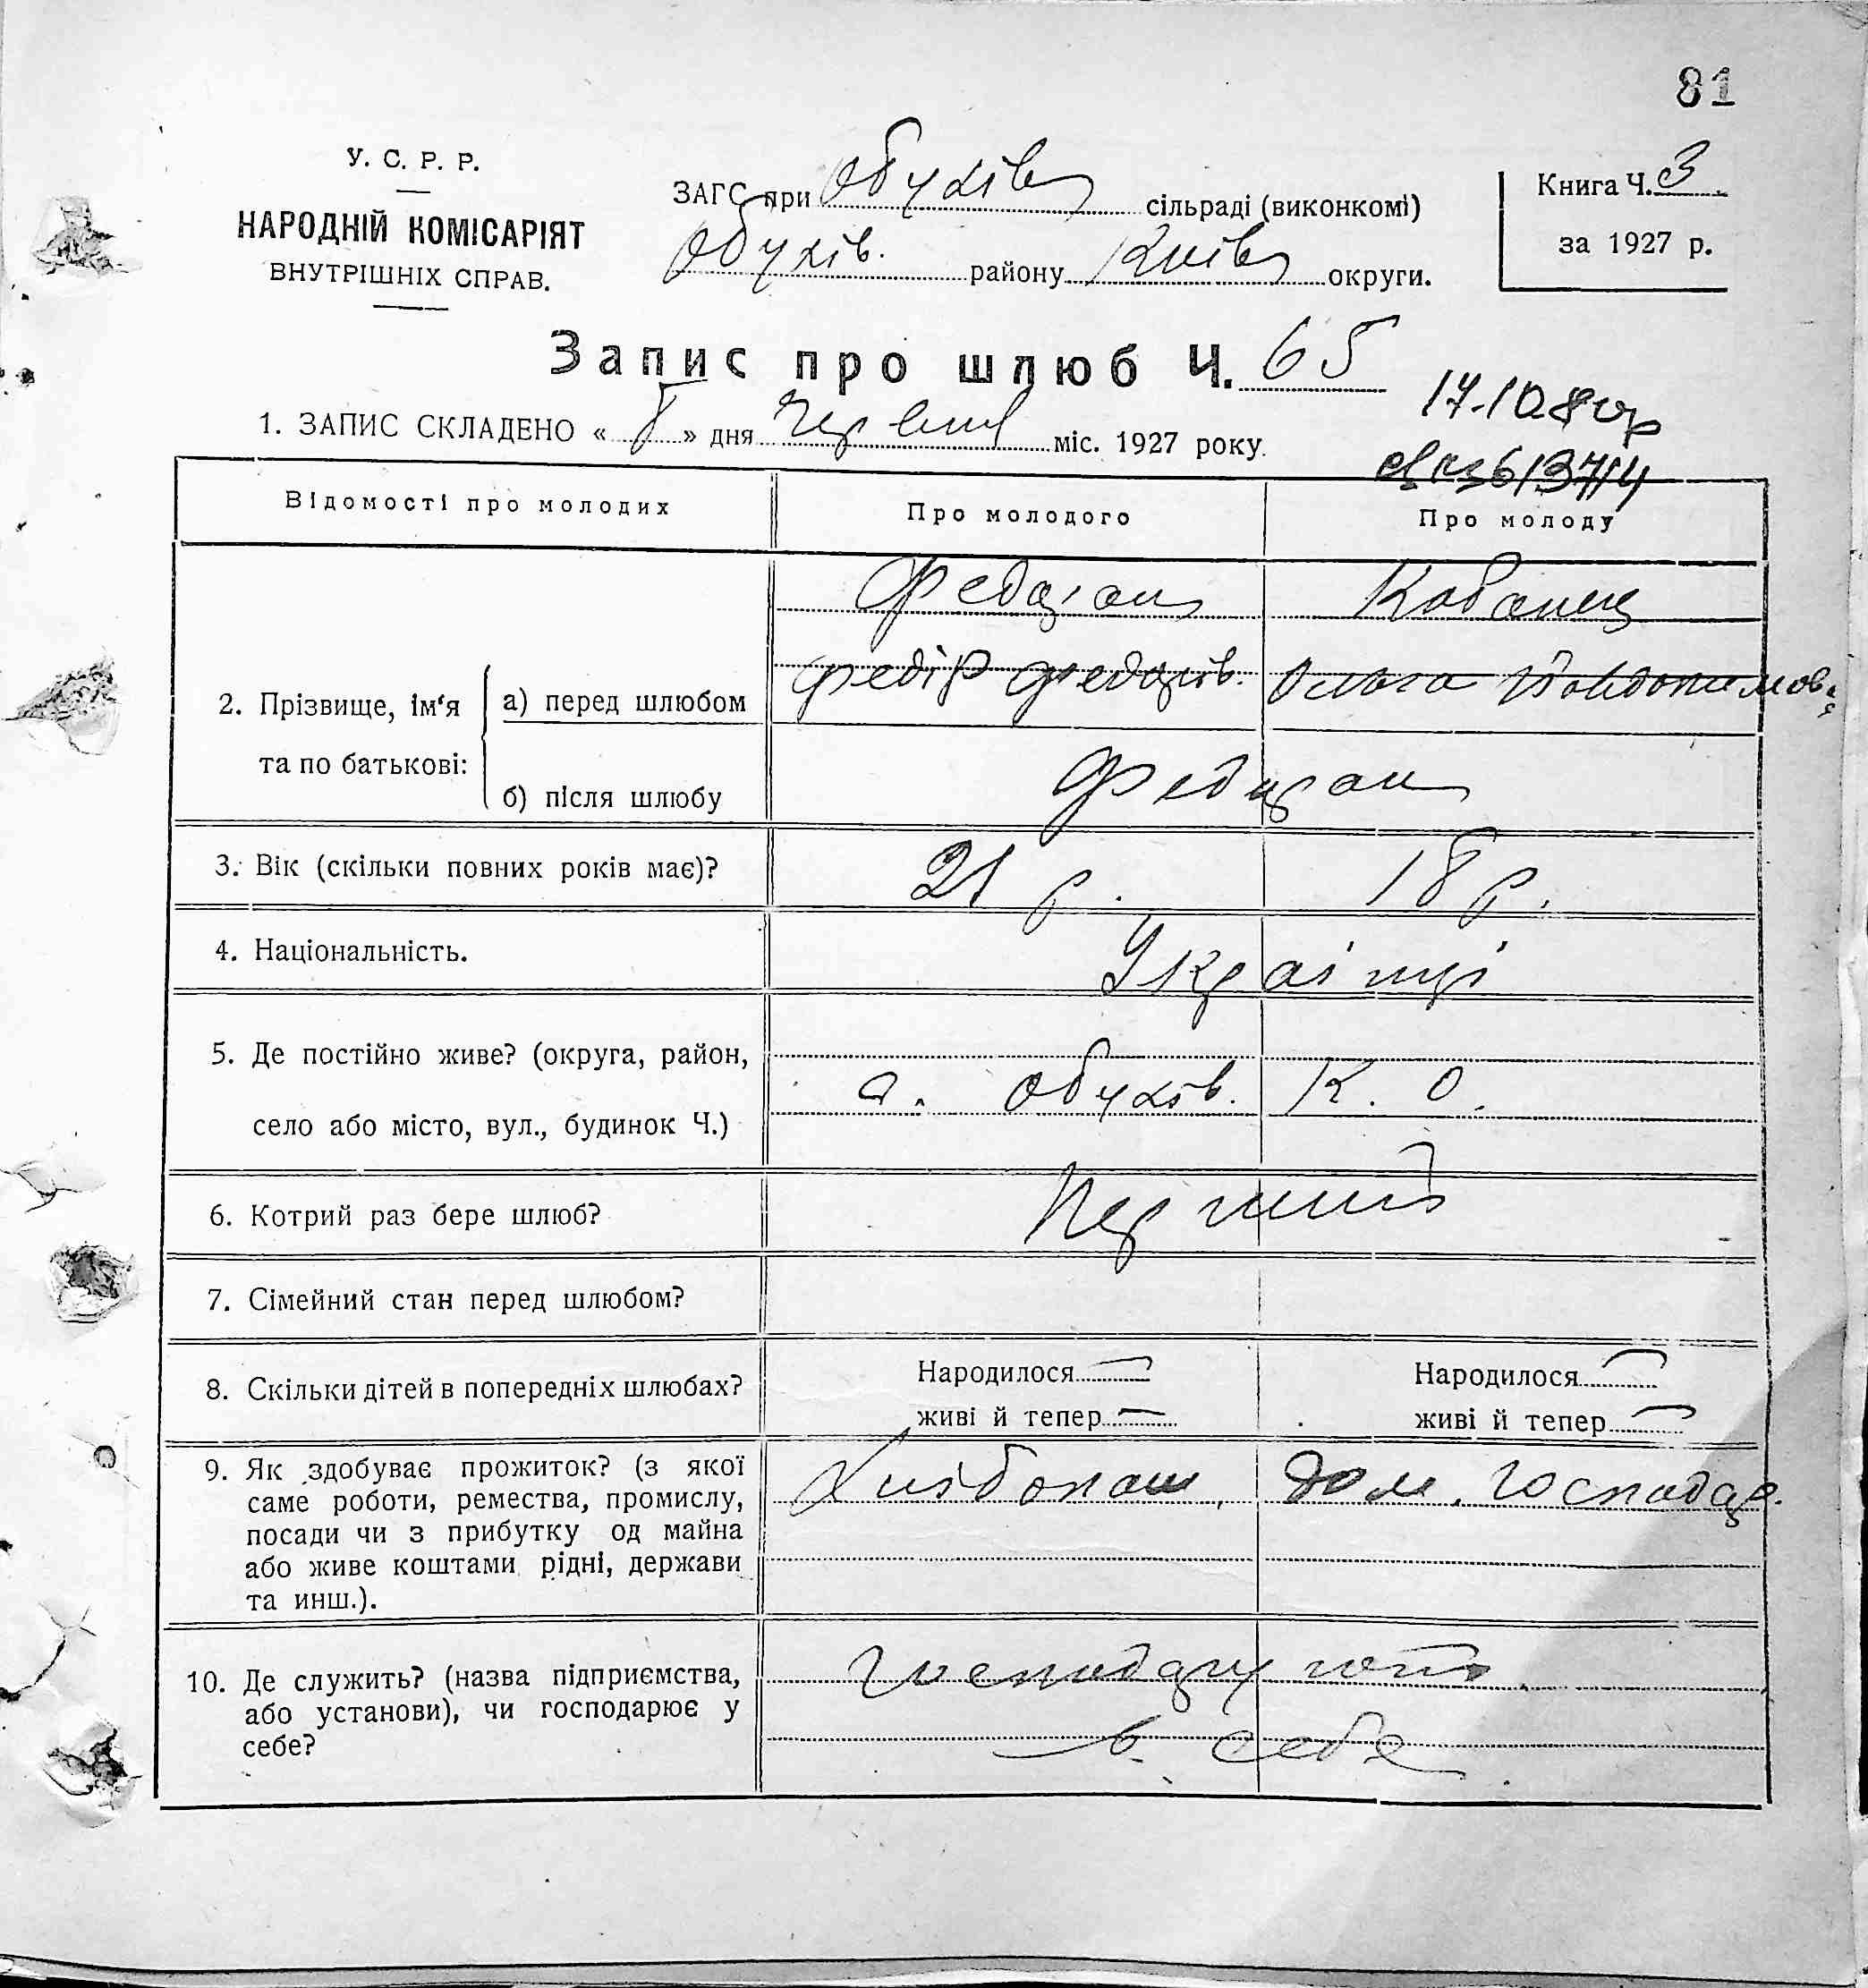 81
У. С. Р. Р.
НАРОДНІЙ КОМІСАРІЯТ
ВНУТРІШНІХ СПРАВ.
ЗАГС при Обухів сільраді (виконкомі)
Обухів. району Київ округи.
Книга Ч. 3
за 1927 р.
Запис про шлюб Ч. 65
1. ЗАПИС СКЛАДЕНО « 8 » дня Червня міс. 1927 року.
17.10.80р
613714
Відомості про молодих
Про молодого
Про молоду
2. Прізвище, ім‘я та по батькові:
а) перед шлюбом
Федоран
Федір Федорів.
Кабанец
Ольга
б) після шлюбу
Федоран
3. Вік (скільки повних років має)?
21 р.
18 р.
4. Національність.
Українці
5. Де постійно живе? (округа, район,
село або місто, вул., будинок Ч.)
с. Обухів. К. О.
6. Котрий раз бере шлюб?
Перший
7. Сімейний стан перед шлюбом?
8. Скільки дітей в попередніх шлюбах?
Народилося —
живі й тепер —
Народилося —
живі й тепер —
9. Як здобуває прожиток? (з якої
саме роботи, ремества, промислу,
посади чи з прибутку од майна
або живе коштами рідні, держави
та инш.).
Хлібопаш.
Дом. господар.
10. Де служить? (назва підприємства,
або установи), чи господарює у
себе?
господарують
в себе